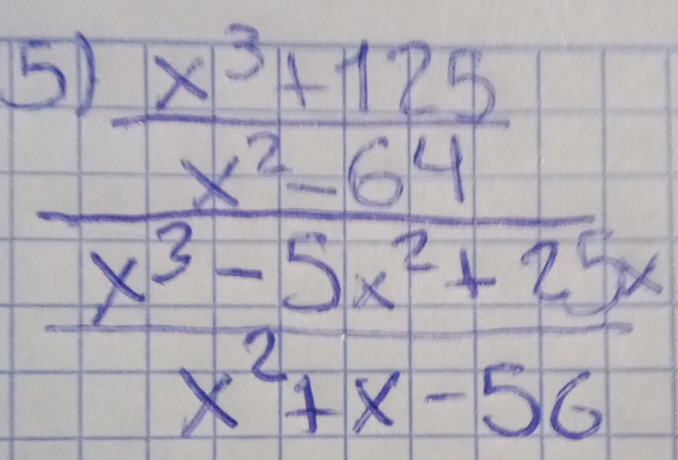 5) x³+125
x²-64
x³-5x²+25x
x²+x-56